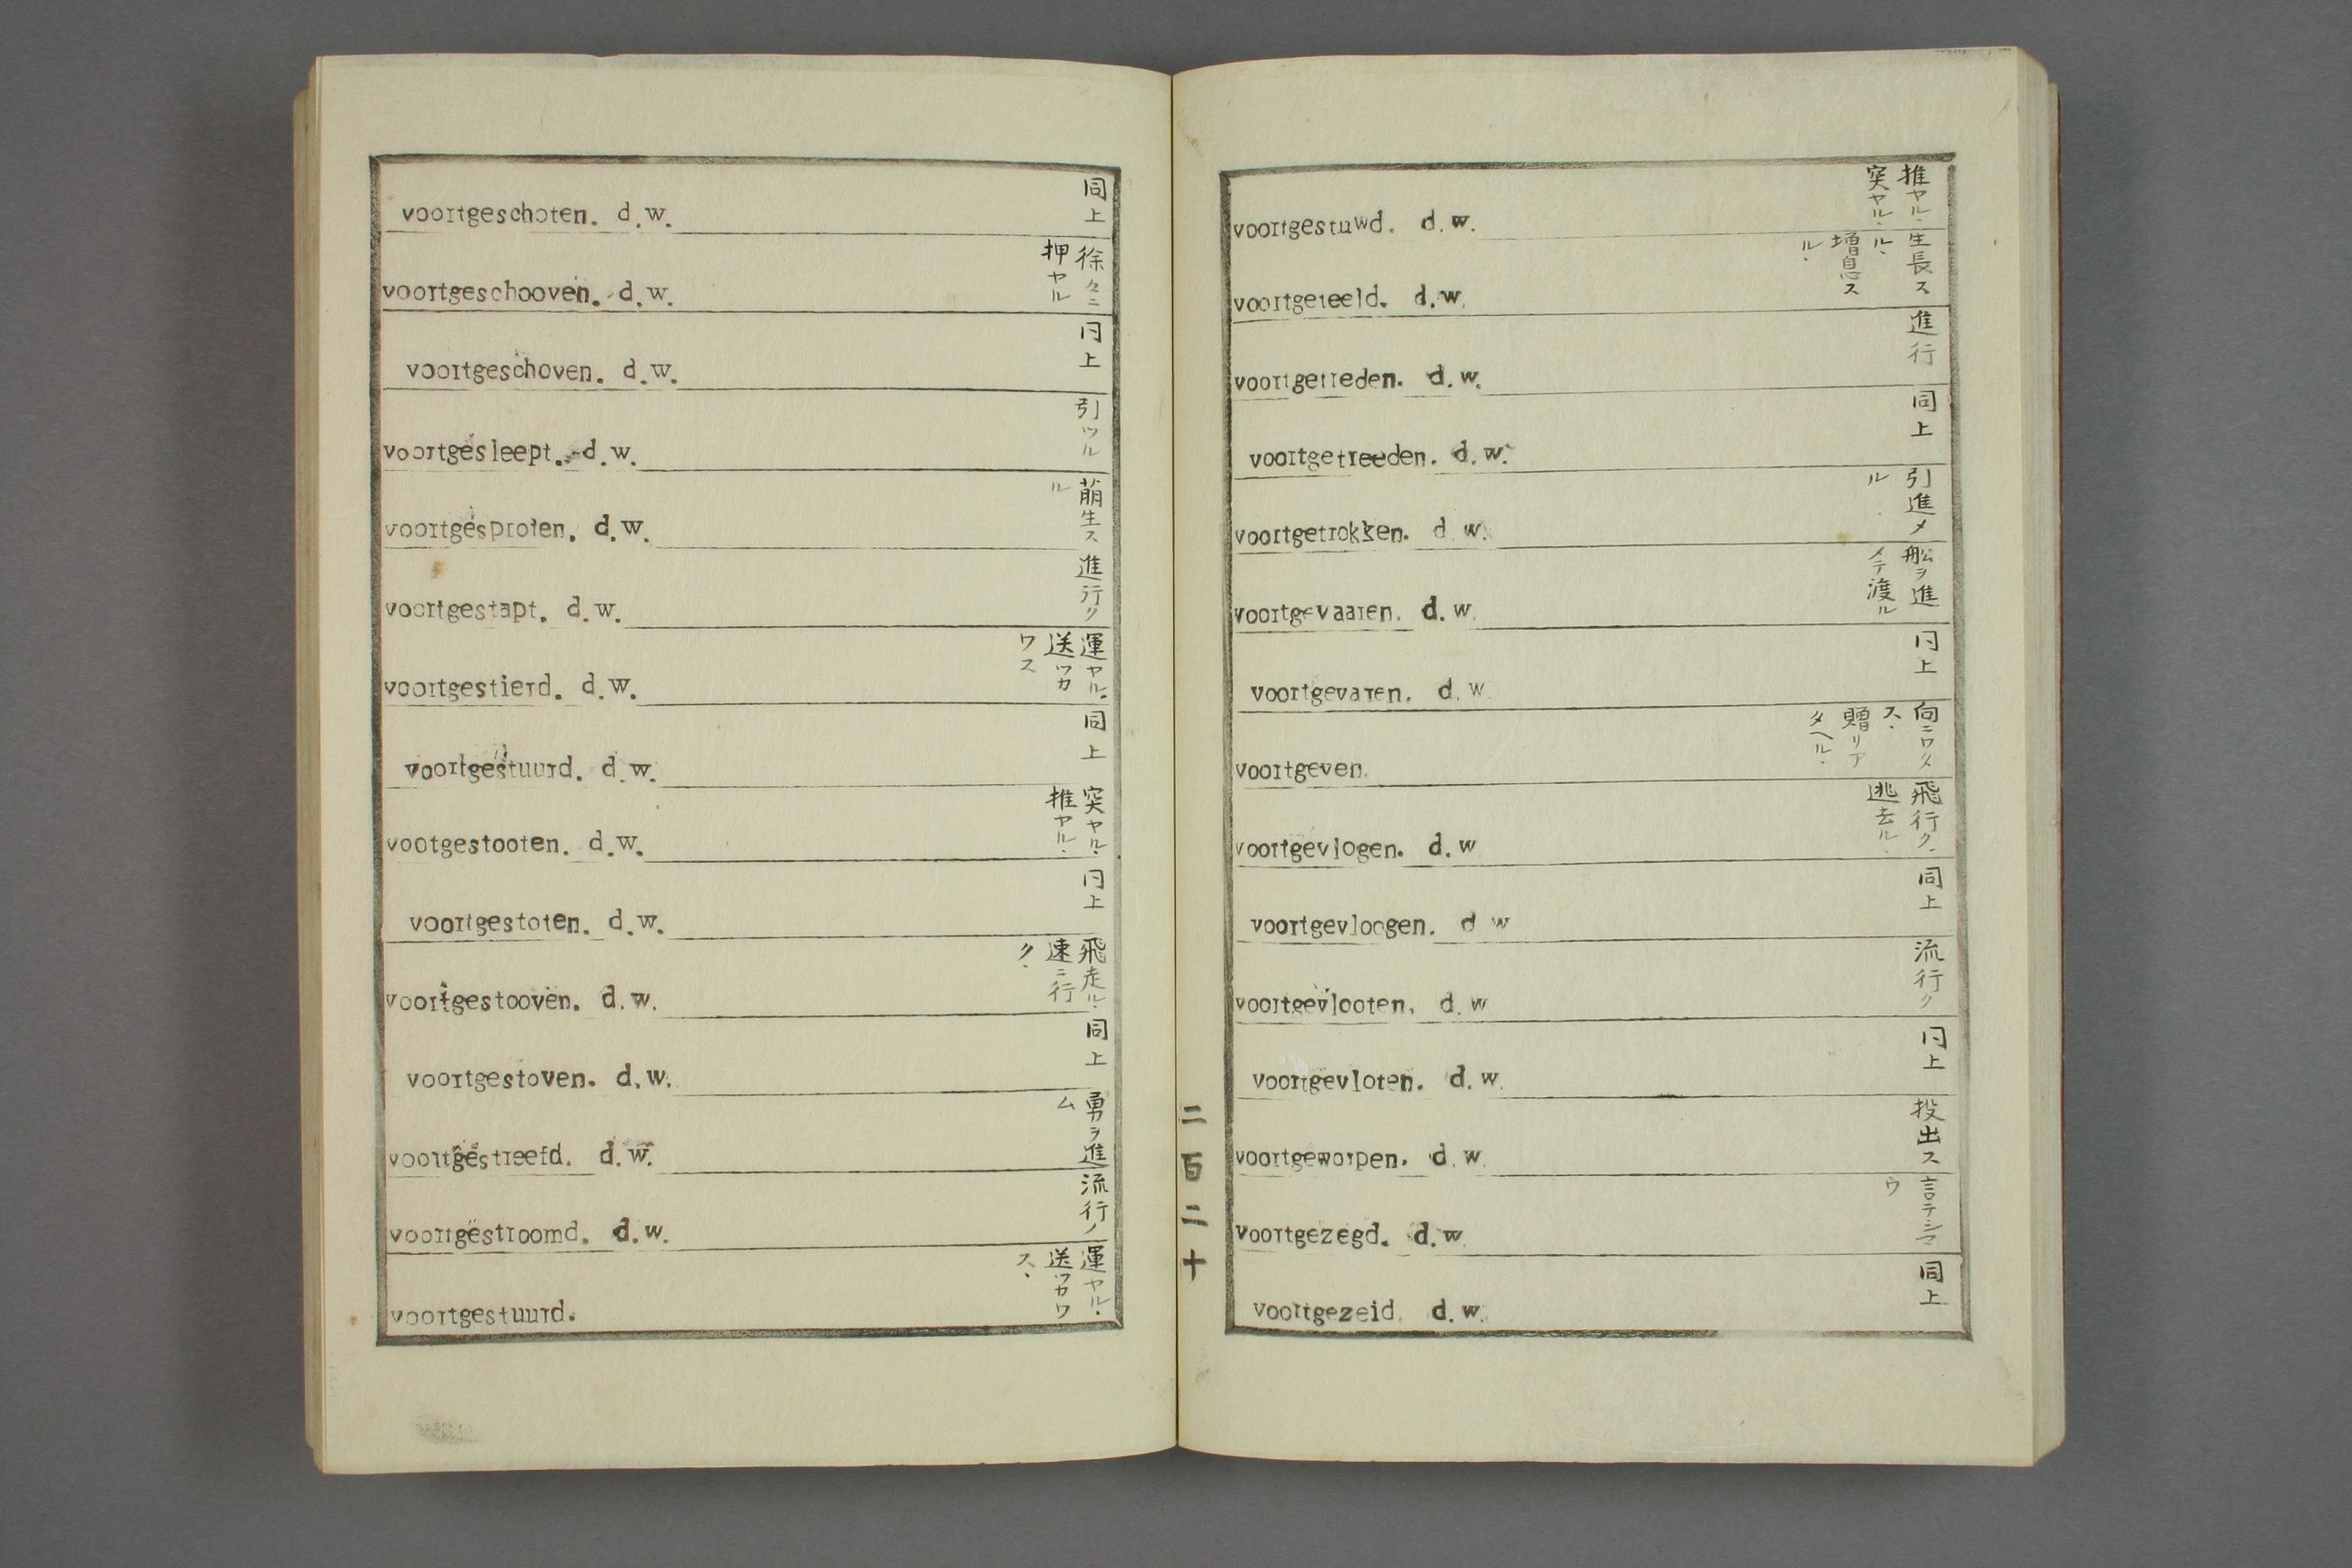 voortgeschoten. d.w. 同上
voortgeschooven. d.w. 徐々ニ押ヤル
voortgeschoven. d.w. 仝上
voortgesleept. d.w. 引ツル
voortgesproten. d.w. 萠生スル
voortgestapt. d.w. 進行ク
voortgestierd. d.w. 運ヤル. 送ツカワス
voortgestuurd. d.w. 同上
vootgestooten. d.w. 突ヤル. 推ヤル.
voortgestoten. d.w. 仝上
voortgestooven. d.w. 飛走ル. 速ニ行ク.
voortgestoven. d.w. 同上
voortgestreefd. d.w. 勇ヲ進ム
voortgestroomd. d.w. 流行ク
voortgestuurd. 運ヤル. 送ツカワス.
二百二十
voortgestuwd. d.w. 推ヤル. 突ヤル.
voortgeteeld. d.w. 生長スル. 増息スル.
voortgetreden. d.w. 進行
voortgetreeden. d.w. 同上
voortgetrokken. d.w. 引進メル
voortgevaaren. d.w. 舩ヲ進メテ渡ル
voortgevaren. d.w. 仝上
voortgeven. 向ニワタス. 贈リアタヘル.
voortgevlogen. d.w 飛行ク. 逃去ル.
voortgevloogen. d w 同上
voortgevlooten. d.w 流行ク
voortgevloten. d.w. 仝上
voortgeworpen. d.w. 投出ス
voortgezegd. d.w. 言テシマウ
voortgezeid. d.w. 同上